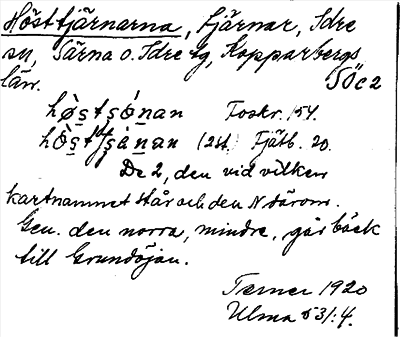 Hösttjärnarna, tjärnar, Idre
sn, Särna o. Idre tg, Kopparbergs
län. 5Öc2
Torskr. 154.
(2st.) Fjätb. 20.
De 2, den vid vilken
kartnamnet står och den N därom.
Gen. den norra, mindre, går bäck
till Grundöjan.
Terner 1920
Ulma 531:4.